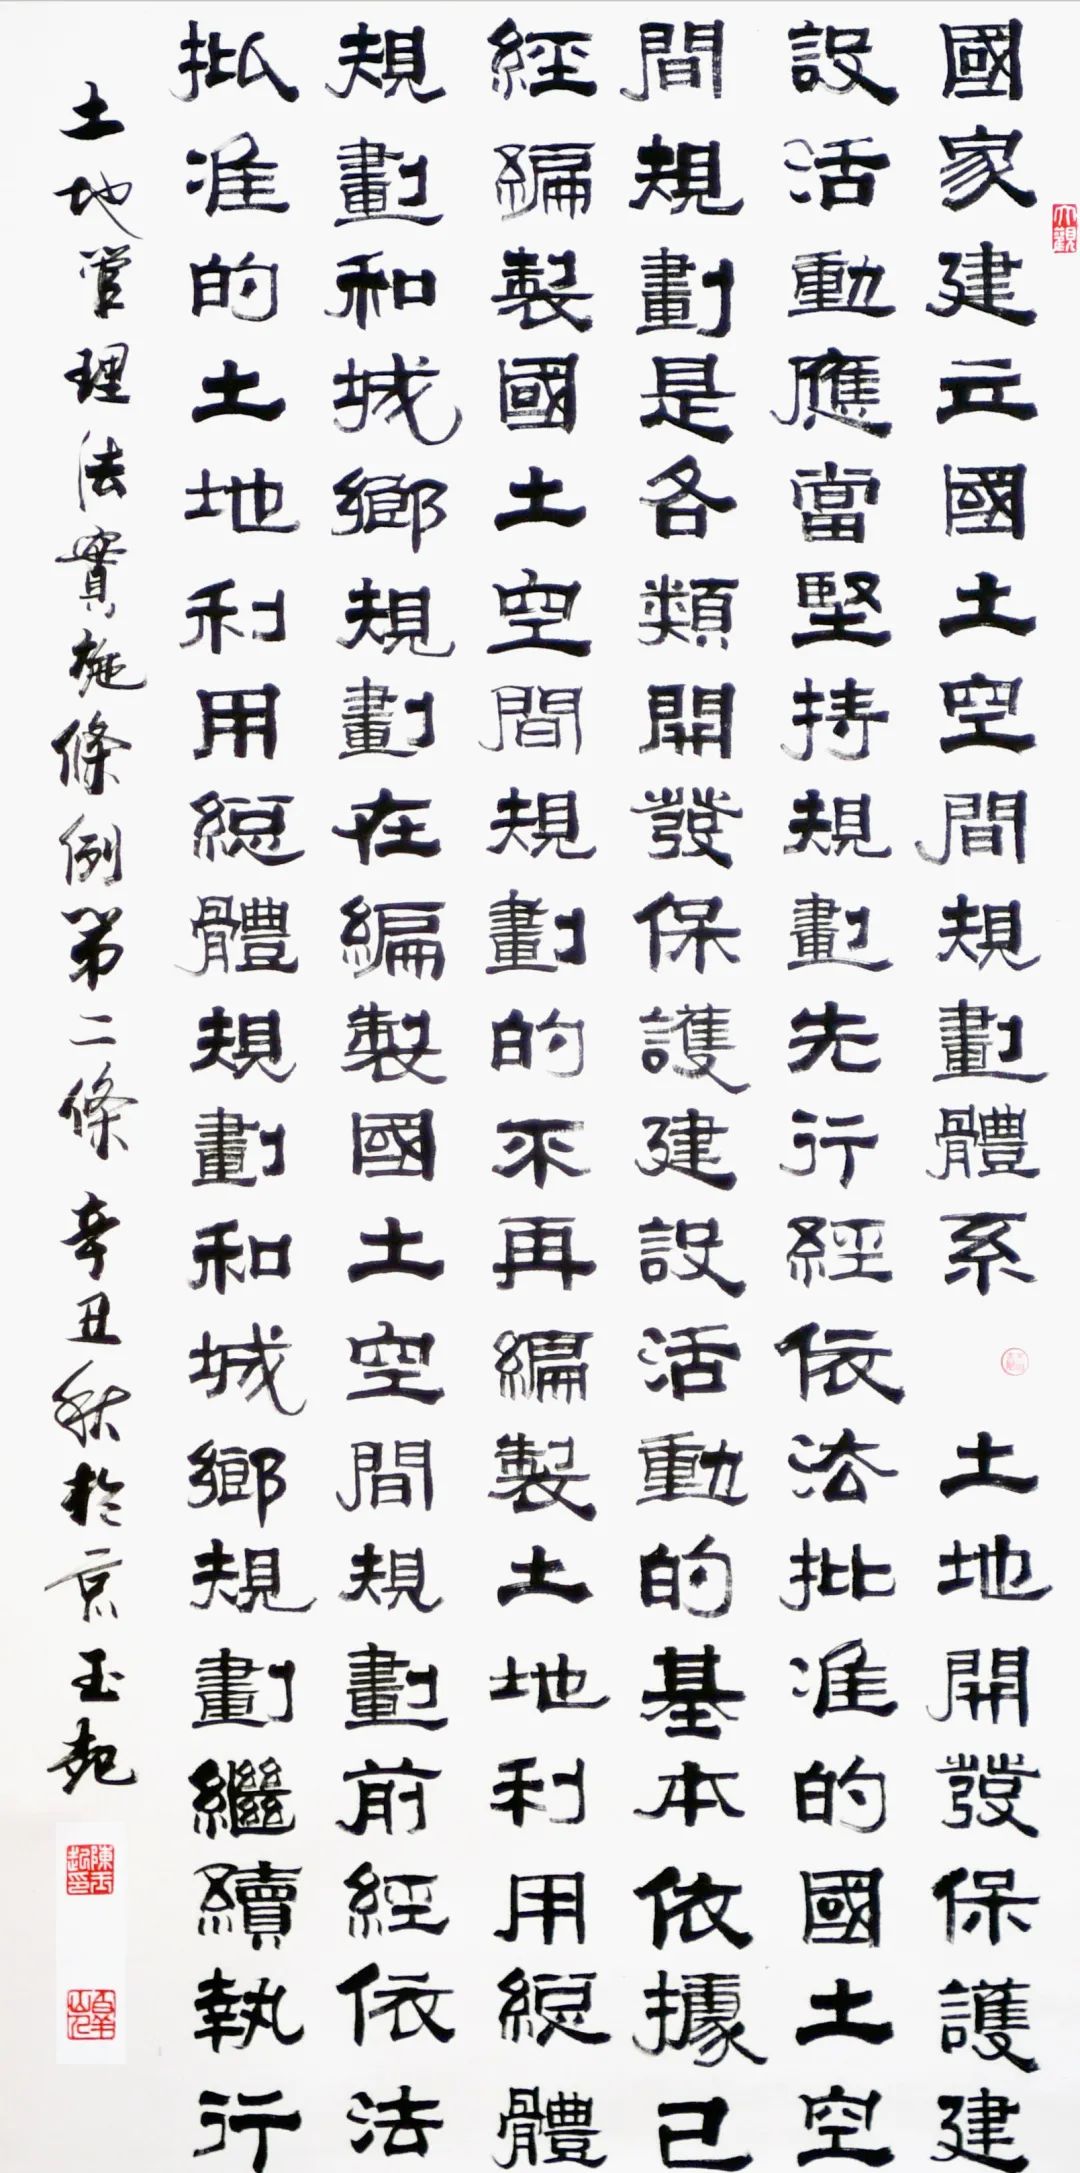 國家建立國土空間規劃體系 土地開發保護建
設活動應當堅持規劃先行經依法批准的國土空
間規劃是各類開發保護建設活動的基本依據已
經編製國土空間規劃的不再編製土地利用總體
規劃和城鄉規劃在編製國土空間規劃前經依法
批准的土地利用總體規劃和城鄉規劃繼續執行
土地管理法實施條例第二條 辛丑秋於京玉起
大觀
陳玉起印